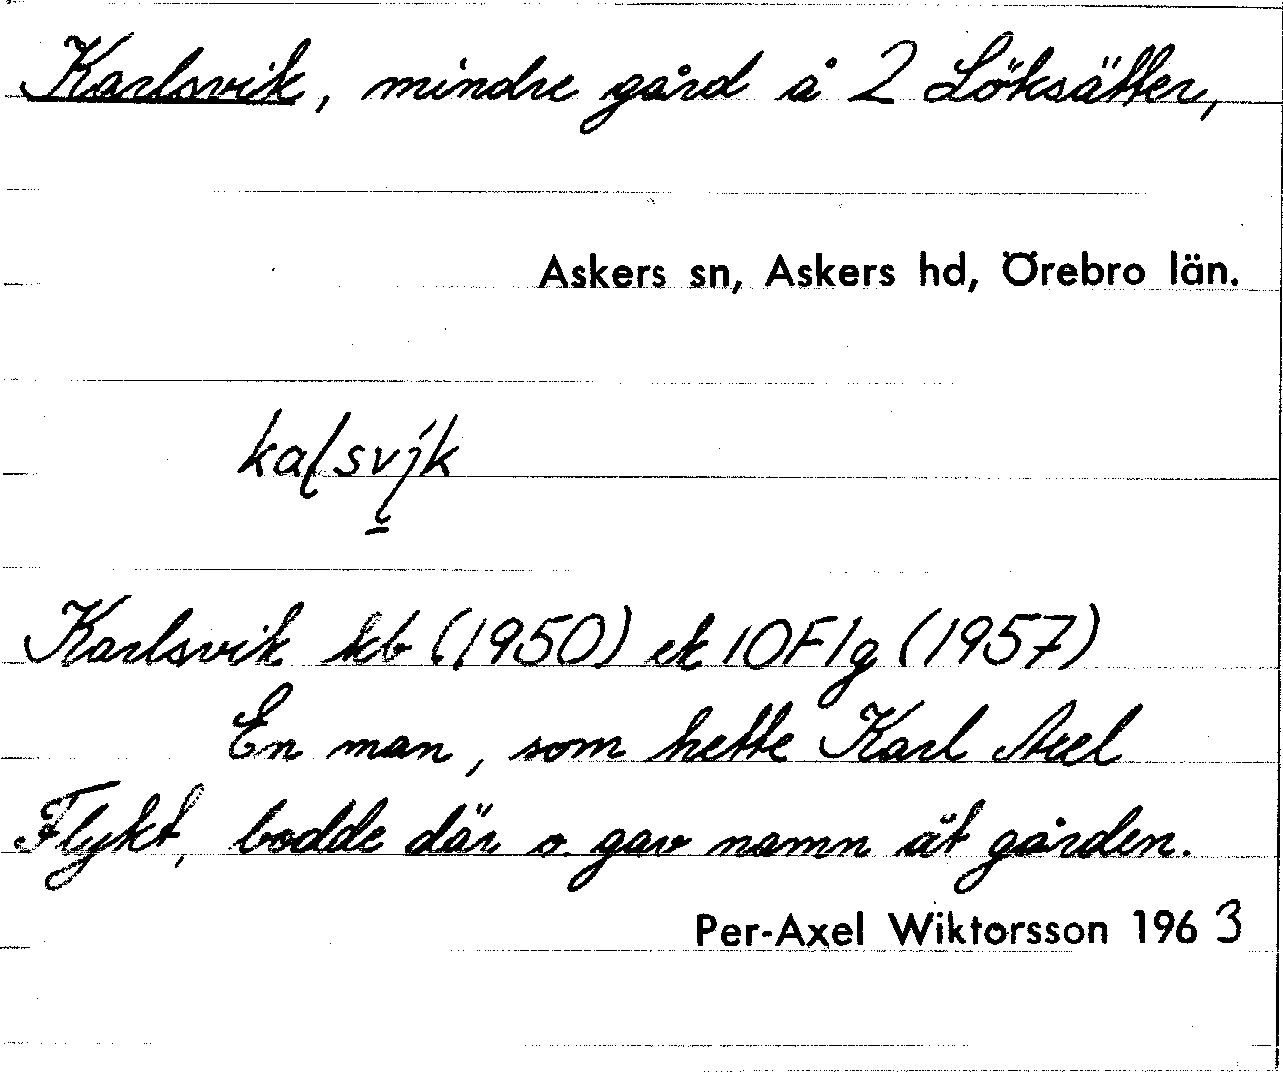 Karlsvik, mindre gård å 2 Löksätter,
Askers sn, Askers hd, Örebro län.
Karlsvik kb (1950) ek 10F1g (1957)
En man, som hette Karl Axel
Flykt, bodde där o. gav namn åt gården.
Per-Axel Wiktorsson 1963